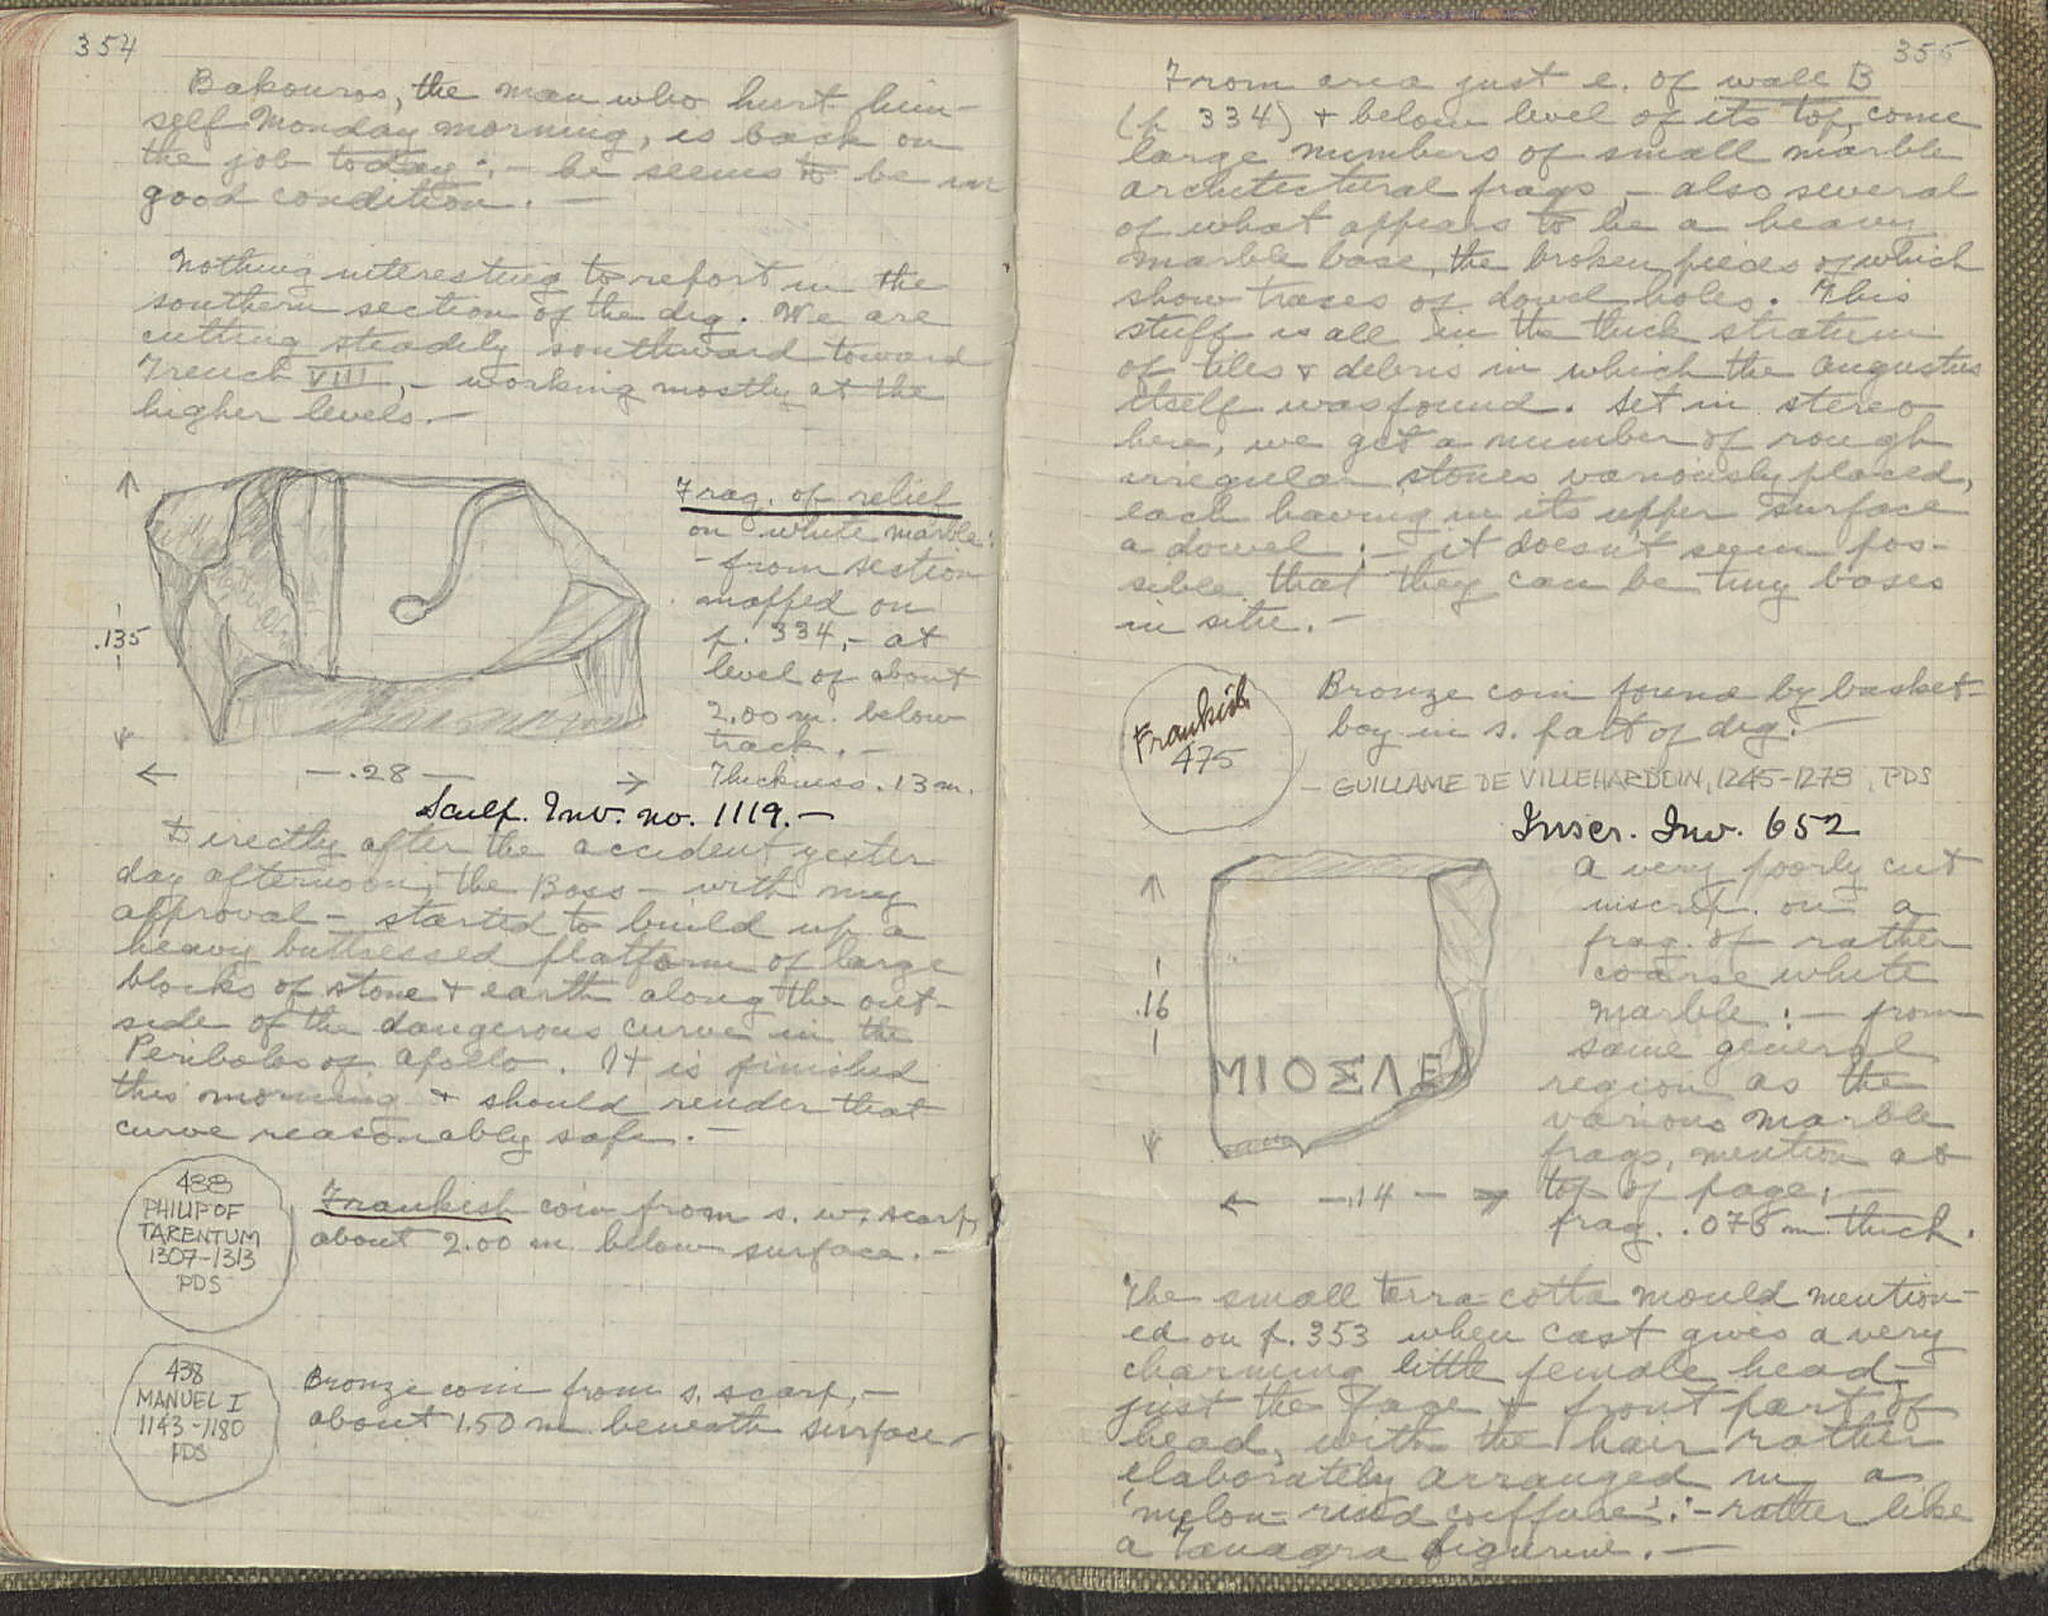 354
Bakouros, the man who hurt him-
self Monday morning, is back on
the job today :- he seems to be in
good condition. -
Nothing interesting to report in the
southern section of the dig. We are
cutting steadily southward toward
Trench VIII, - working mostly at the
higher levels. -
.135
- .28 -
Frag. of relief
on white marble:
- from section
mapped on
p. 334, - at
level of about
2.00 m. below
track. -
Thickness .13 m.
Sculp. Inv. no. 1119. -
Directly after the accident yester
day afternoon, the Boss - with my
approval - started to build up a
heavy buttressed platform of large
blocks of stone + earth along the out-
side of the dangerous curve in the
Peribolos of Apollo. It is finished
this morning + should render that
curve reasonably safe. -
488
PHILIP OF
TARENTUM
1307-1313
PDS
Frankish coin from s. w. scarp,
about 2.00 m. below surface. -
438
MANUEL I
1143-1180
PDS
Bronze coin from s. scarp, -
about 1.50 m beneath surface -
355
From area just e. of wall B
(p 334) + below level of its top, come
large numbers of small marble
architectural frags, - also several
of what appears to be a heavy
marble base, the broken pieces of which
show traces of dowel holes. This
stuff is all in the thick stratum
of tiles + debris in which the Augustus
itself was found. Set in stereo
here, we get a number of rough
irregular stones variously placed,
each having in its upper surface
a dowel :- it doesn't seem pos-
sible that they can be tiny bases
in situ. -
Frankish
475
Bronze coin found by basket-
boy in s. part of dig. -
- GUILLAME DE VILLEHARDOIN, 1245-1278, PDS
Inscr. Inv. 652
.16
ΜΙΟΣΛΕ
- .14 -
A very poorly cut
inscrip. on a
frag. of rather
coarse white
marble :- from
same general
region as the
various marble
frags, mention at
top of page; -
frag. .078 m. thick.
The small terra-cotta mould mention-
ed on p. 353 when cast gives a very
charming little female head -
just the face + front part of
head, with the hair rather
elaborately arranged in a
'melon-rind coiffure' :- rather like
a Tanagra figurine. -